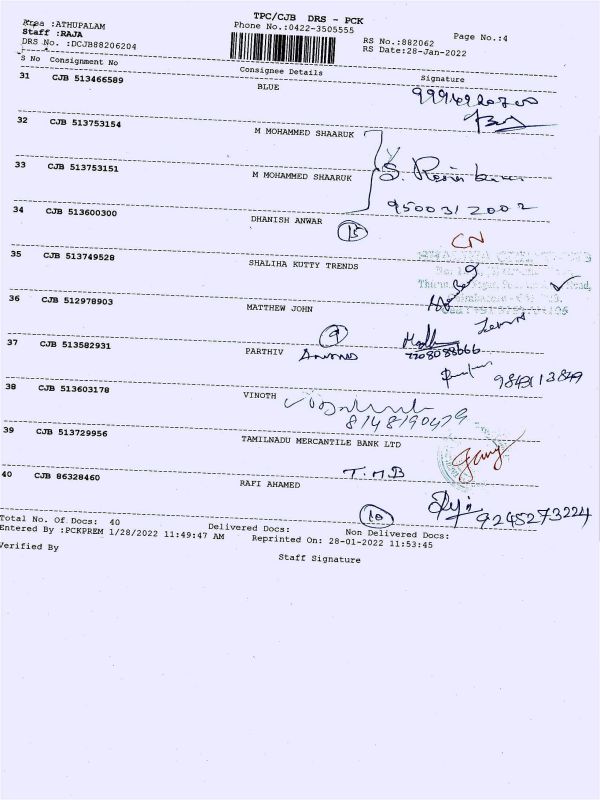 TPC/CJB DRS - PCK
Area :ATHUPALAM
Phone No.:0422-3505555
Page No.:4
Staff :RAJA
RS No.:882062
DRS No. :DCJB88206204
RS Date:28-Jan-2022
S No Consignment No Consignee Details Signature
31 CJB 513466589 BLUE
32 CJB 513753154 M MOHAMMED SHAARUK
33 CJB 513753151 M MOHAMMED SHAARUK
9500312002
34 CJB 513600300 DHANISH ANWAR
15
CN
35 CJB 513749528 SHALIHA KUTTY TRENDS
36 CJB 512978903 MATTHEW JOHN
9
37 CJB 513582931 PARTHIV
7708088666
9843113849
38 CJB 513603178 VINOTH
8148190479
39 CJB 513729956 TAMILNADU MERCANTILE BANK LTD
T.M.B
40 CJB 86328460 RAFI AHAMED
10
9245273224
Total No. Of Docs: 40 Delivered Docs: Non Delivered Docs:
Entered By :PCKPREM 1/28/2022 11:49:47 AM Reprinted On: 28-01-2022 11:53:45
Verified By
Staff Signature